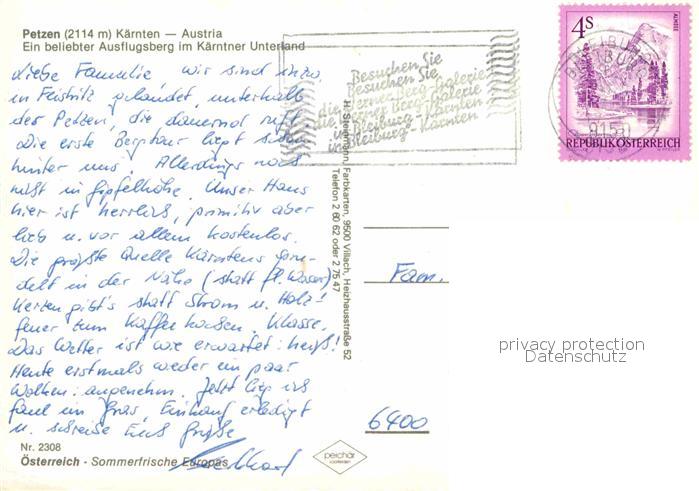 Petzen (2114 m) Kärnten — Austria
Ein beliebter Ausflugsberg im Kärntner Unterland
Liebe Familie wir sind inzw.
in Feistritz gelandet, unterhalb
der Petzen, die dauernd ruft.
Die erste Bergtour liegt schon
hinter uns. Allerdings noch
nicht in Gipfelhöhe. Unser Haus
hier ist herrlich, primitiv aber
lieb u. vor allem kostenlos.
Die größte Quelle Kärntens spru-
delt in der Nähe (statt fl. Wasser)
Kerzen gibt's statt Strom u. Holz!
feuer zum Kaffee kochen. Klasse.
Das Wetter ist wie erwartet: heiß!
Heute erstmals wieder ein paar
Wolken: angenehm. Jetzt lieg ich
faul im Gras, Einkauf erledigt
u. schreibe Euch Grüße
Nr. 2308
Österreich - Sommerfrische Europas
H. Schiffmann, Farbkarten, 9500 Villach, Heizhausstraße 52
Telefon 2 60 62 oder 2 75 47
Besuchen Sie
Besuchen Sie
die Werner Berg-Galerie
die Werner Berg-Galerie
in Bleiburg-Kärnten
in Bleiburg-Kärnten
BLEIBURG
9150
4 S
ALMSEE
REPUBLIK ÖSTERREICH
Fam.
privacy protection
Datenschutz
6400